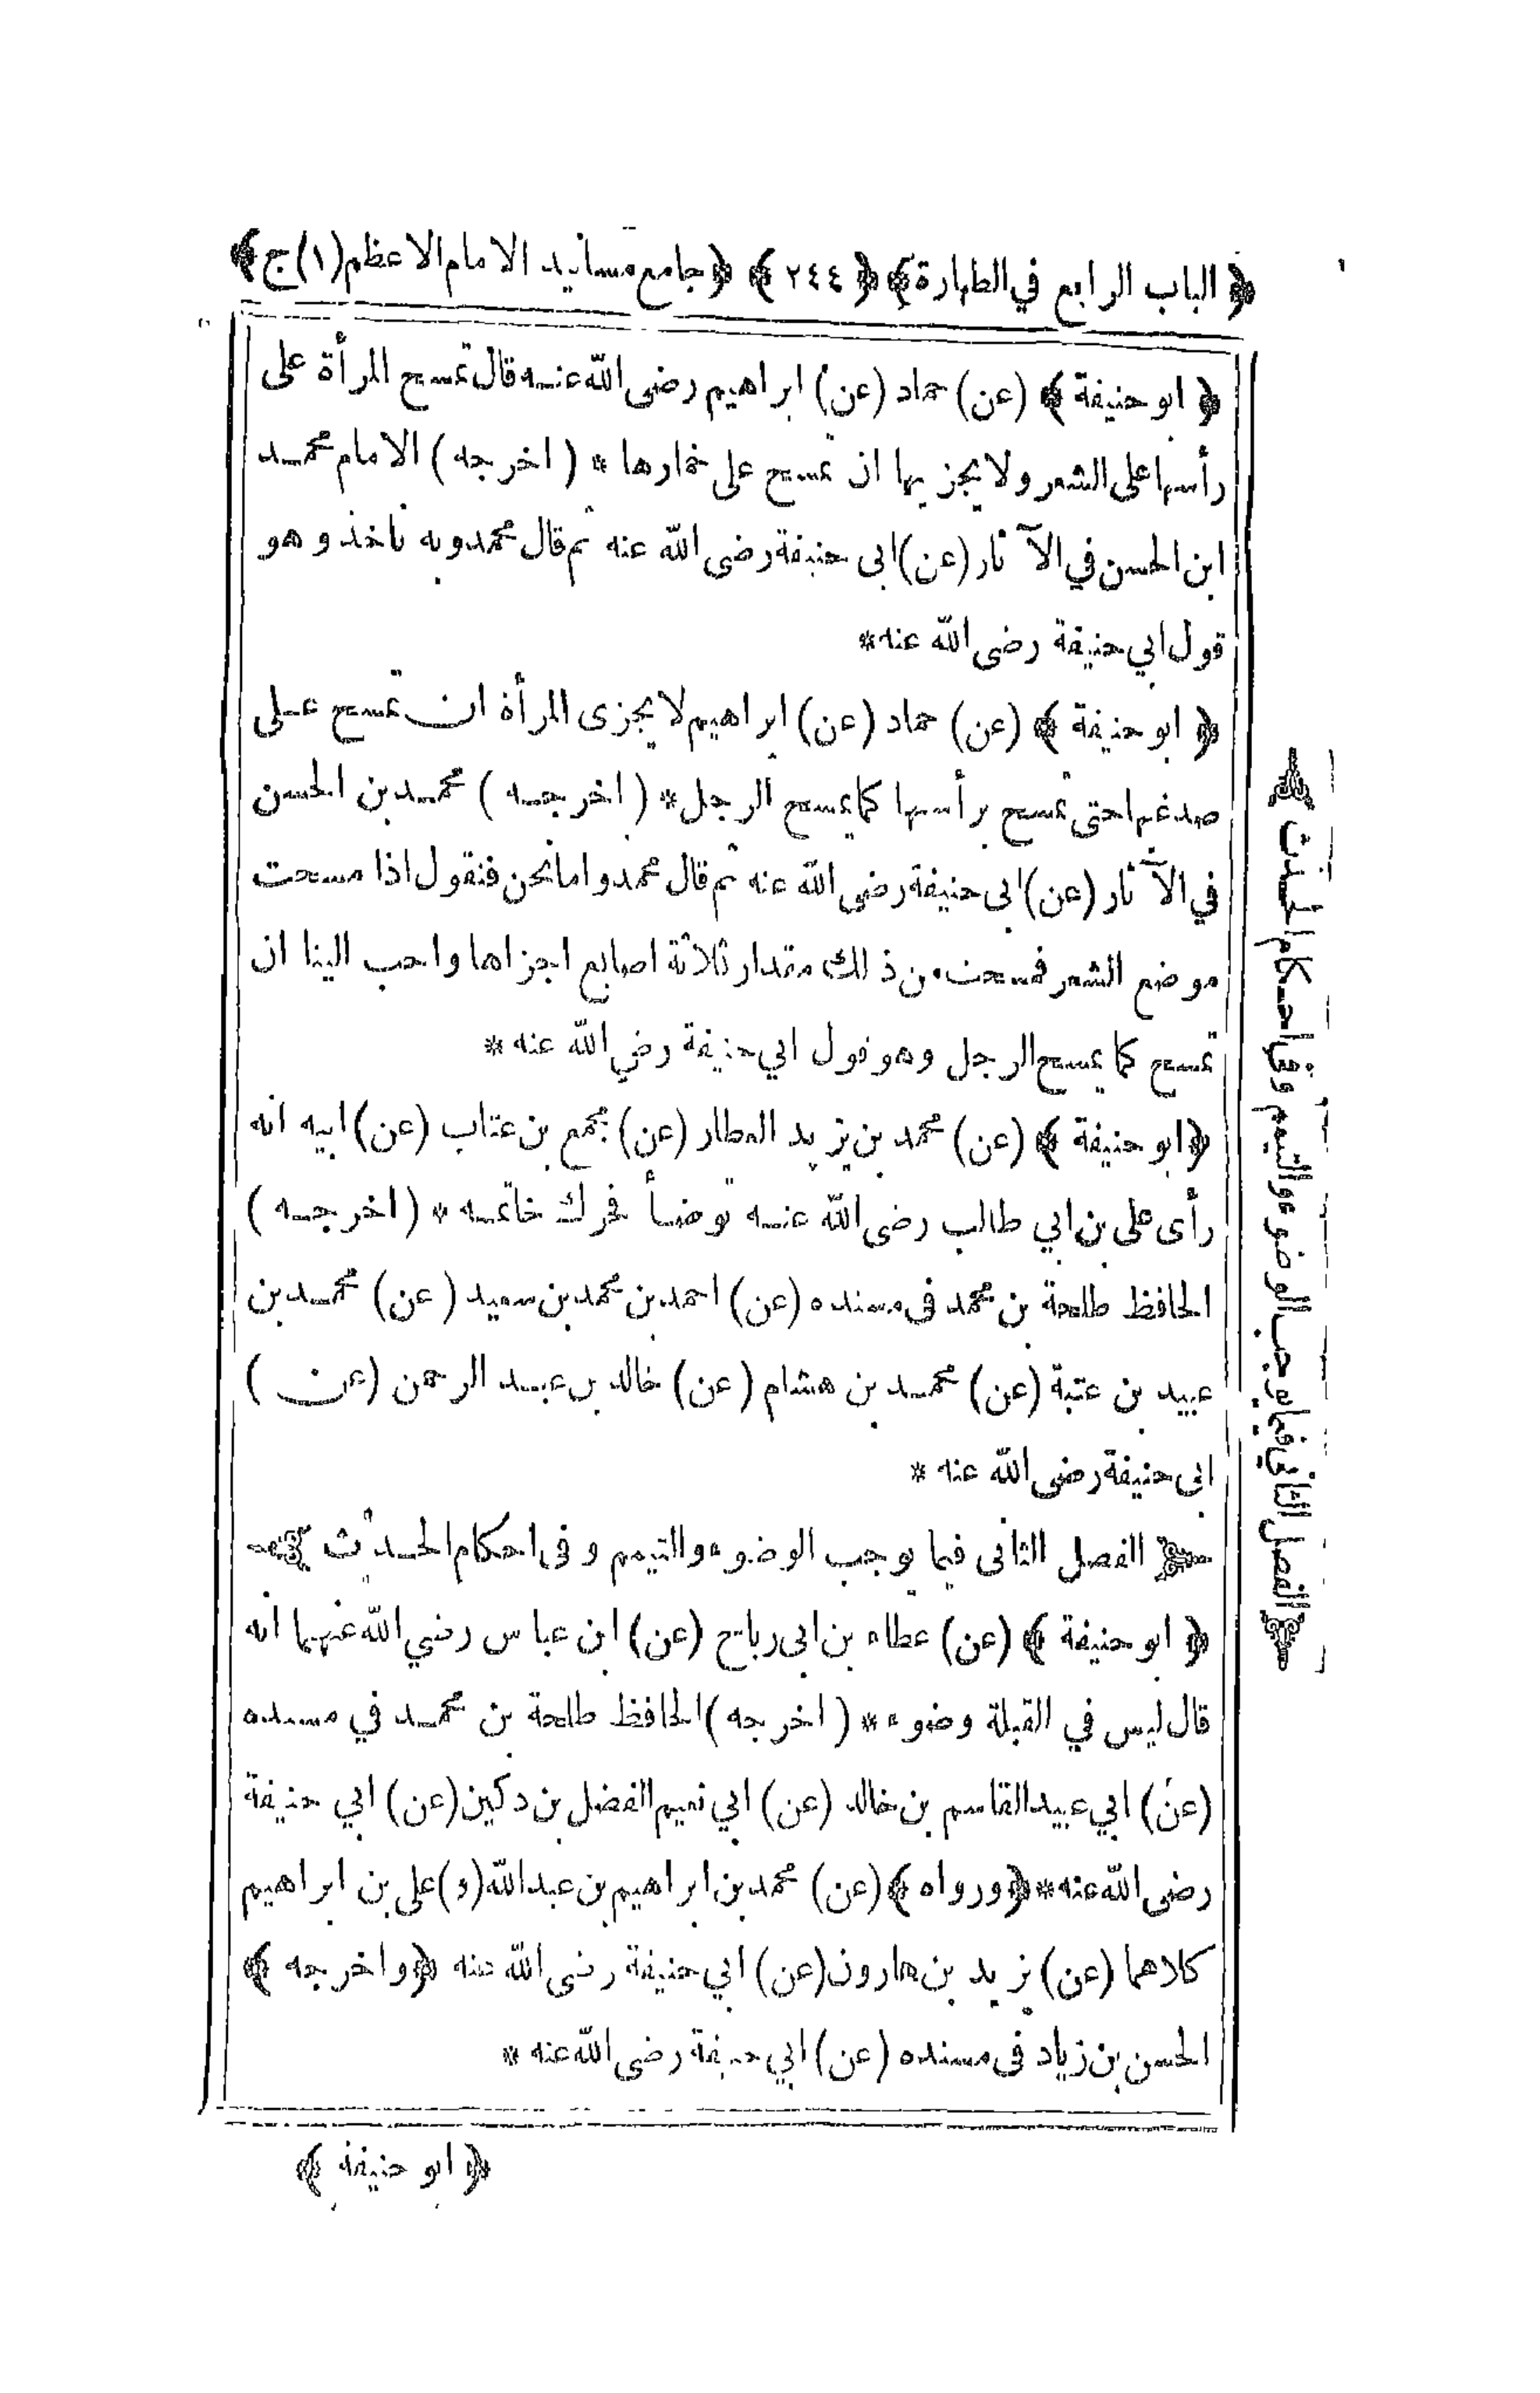 ﴿ الباب الرابع في الطهارة ﴾ ﴿ ٢٤٤ ﴾ ﴿ جامع مسانيد الامام الاعظم (١) ج ﴾
﴿ ابو حنيفة ﴾ (عن) حماد (عن) ابراهيم رضى الله عنه قال تمسح المرأة على
رأسها على الشعر ولا يجزيها ان تمسح على خمارها * ( اخرجه ) الامام محمد
ابن الحسن في الآثار (عن) ابى حنيفة رضى الله عنه ثم قال محمد وبه ناخذ و هو
قول ابي حنيفة رضى الله عنه *
﴿ ابو حنيفة ﴾ (عن) حماد (عن) ابراهيم لا يجزى المرأة ان تمسح على
صدغيها حتى تمسح برأسها كما يمسح الرجل * ( اخرجه ) محمد بن الحسن
في الآثار (عن) ابى حنيفة رضى الله عنه ثم قال محمد واما نحن فنقول اذا مسحت
موضع الشعر فمسحت من ذلك مقدار ثلاثة اصابع اجزاها واحب الينا ان
تمسح كما يمسح الرجل وهو قول ابي حنيفة رضي الله عنه *
﴿ ابو حنيفة ﴾ (عن) محمد بن يزيد العطار (عن) مجمع بن عتاب (عن) ابيه انه
رأى على بن ابي طالب رضى الله عنه توضأ فحرك خاتمه * ( اخرجه )
الحافظ طلحة بن محمد فى مسنده (عن) احمد بن محمد بن سعيد (عن) محمد بن
عبيد بن عتبة (عن) محمد بن هشام (عن) خالد بن عبد الرحمن (عن)
ابى حنيفة رضى الله عنه *
الفصل الثانى فيما يوجب الوضوء والتيمم و فى احكام الحدث
﴿ ابو حنيفة ﴾ (عن) عطاء بن ابى رباح (عن) ابن عباس رضي الله عنهما انه
قال ليس في القبلة وضوء * ( اخرجه ) الحافظ طلحة بن محمد في مسنده
(عن) ابي عبيد القاسم بن خالد (عن) ابي نعيم الفضل بن دكين (عن) ابي حنيفة
رضى الله عنه * ﴿ ورواه ﴾ (عن) محمد بن ابراهيم بن عبد الله (و) على بن ابراهيم
كلاهما (عن) يزيد بن هارون (عن) ابي حنيفة رضى الله عنه ﴿ واخرجه ﴾
الحسن بن زياد فى مسنده (عن) ابي حنيفة رضى الله عنه *
﴿ ابو حنيفة ﴾
الفصل الثاني فيما يوجب الوضوء والتيمم وفى احكام الحدث